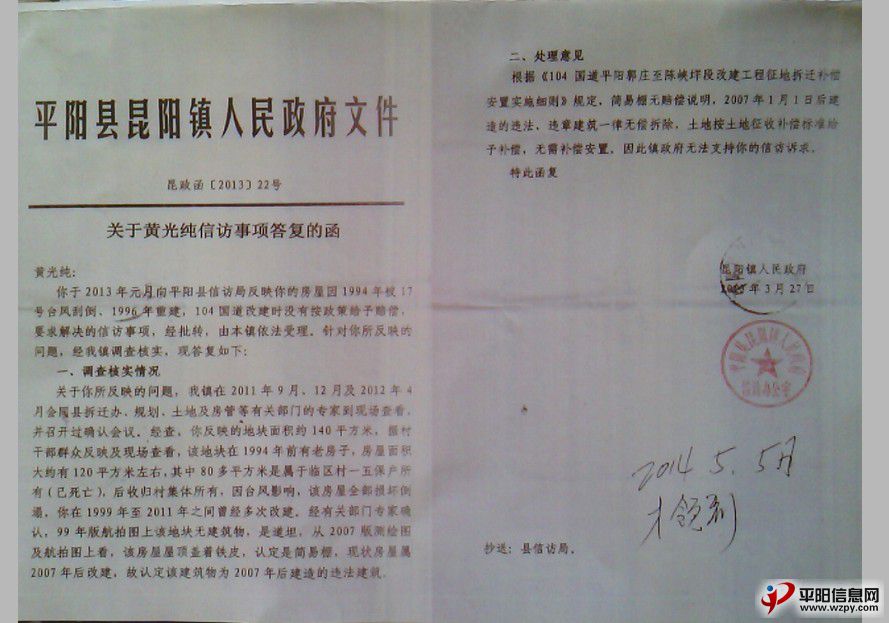 平阳县昆阳镇人民政府文件
昆政函〔2013〕22号
关于黄光纯信访事项答复的函
黄光纯：
你于2013年元月向平阳县信访局反映你的房屋因1994年被17
号台风刮倒，1996年重建，104国道改建时没有按政策给予赔偿，
要求解决的信访事项，经批转，由本镇依法受理。针对你所反映的
问题，经我镇调查核实，现答复如下：
一、调查核实情况
关于你所反映的问题，我镇在2011年9月、12月及2012年4
月会同县拆迁办、规划、土地及房管等有关部门的专家到现场查看，
并召开过确认会议。经查，你反映的地块面积约140平方米，据村
干部群众反映及现场查看，该地块在1994年前有老房子，房屋面积
大约有120平方米左右，其中80多平方米是属于临区村一五保户所
有（已死亡），后收归村集体所有，因台风影响，该房屋全部损坏倒
塌，你在1999年至2011年之间曾经多次改建。经有关部门专家确
认，99年版航拍图上该地块无建筑物，是道坦，从2007版测绘图
及航拍图上看，该房屋屋顶盖着铁皮，认定是简易棚，现状房屋属
2007年后改建，故认定该建筑物为2007年后建造的违法建筑。
二、处理意见
根据《104国道平阳郭庄至陈峡垟段改建工程征地拆迁补偿
安置实施细则》规定，简易棚无赔偿说明，2007年1月1日后建
造的违法、违章建筑一律无偿拆除，土地按土地征收补偿标准给
予补偿，无需补偿安置。因此镇政府无法支持你的信访诉求。
特此函复
昆阳镇人民政府
2013年3月27日
平阳县昆阳镇人民政府
信访办公室
2014 5. 5月
才领到
抄送：县信访局。
平阳信息网
www.wzpy.com